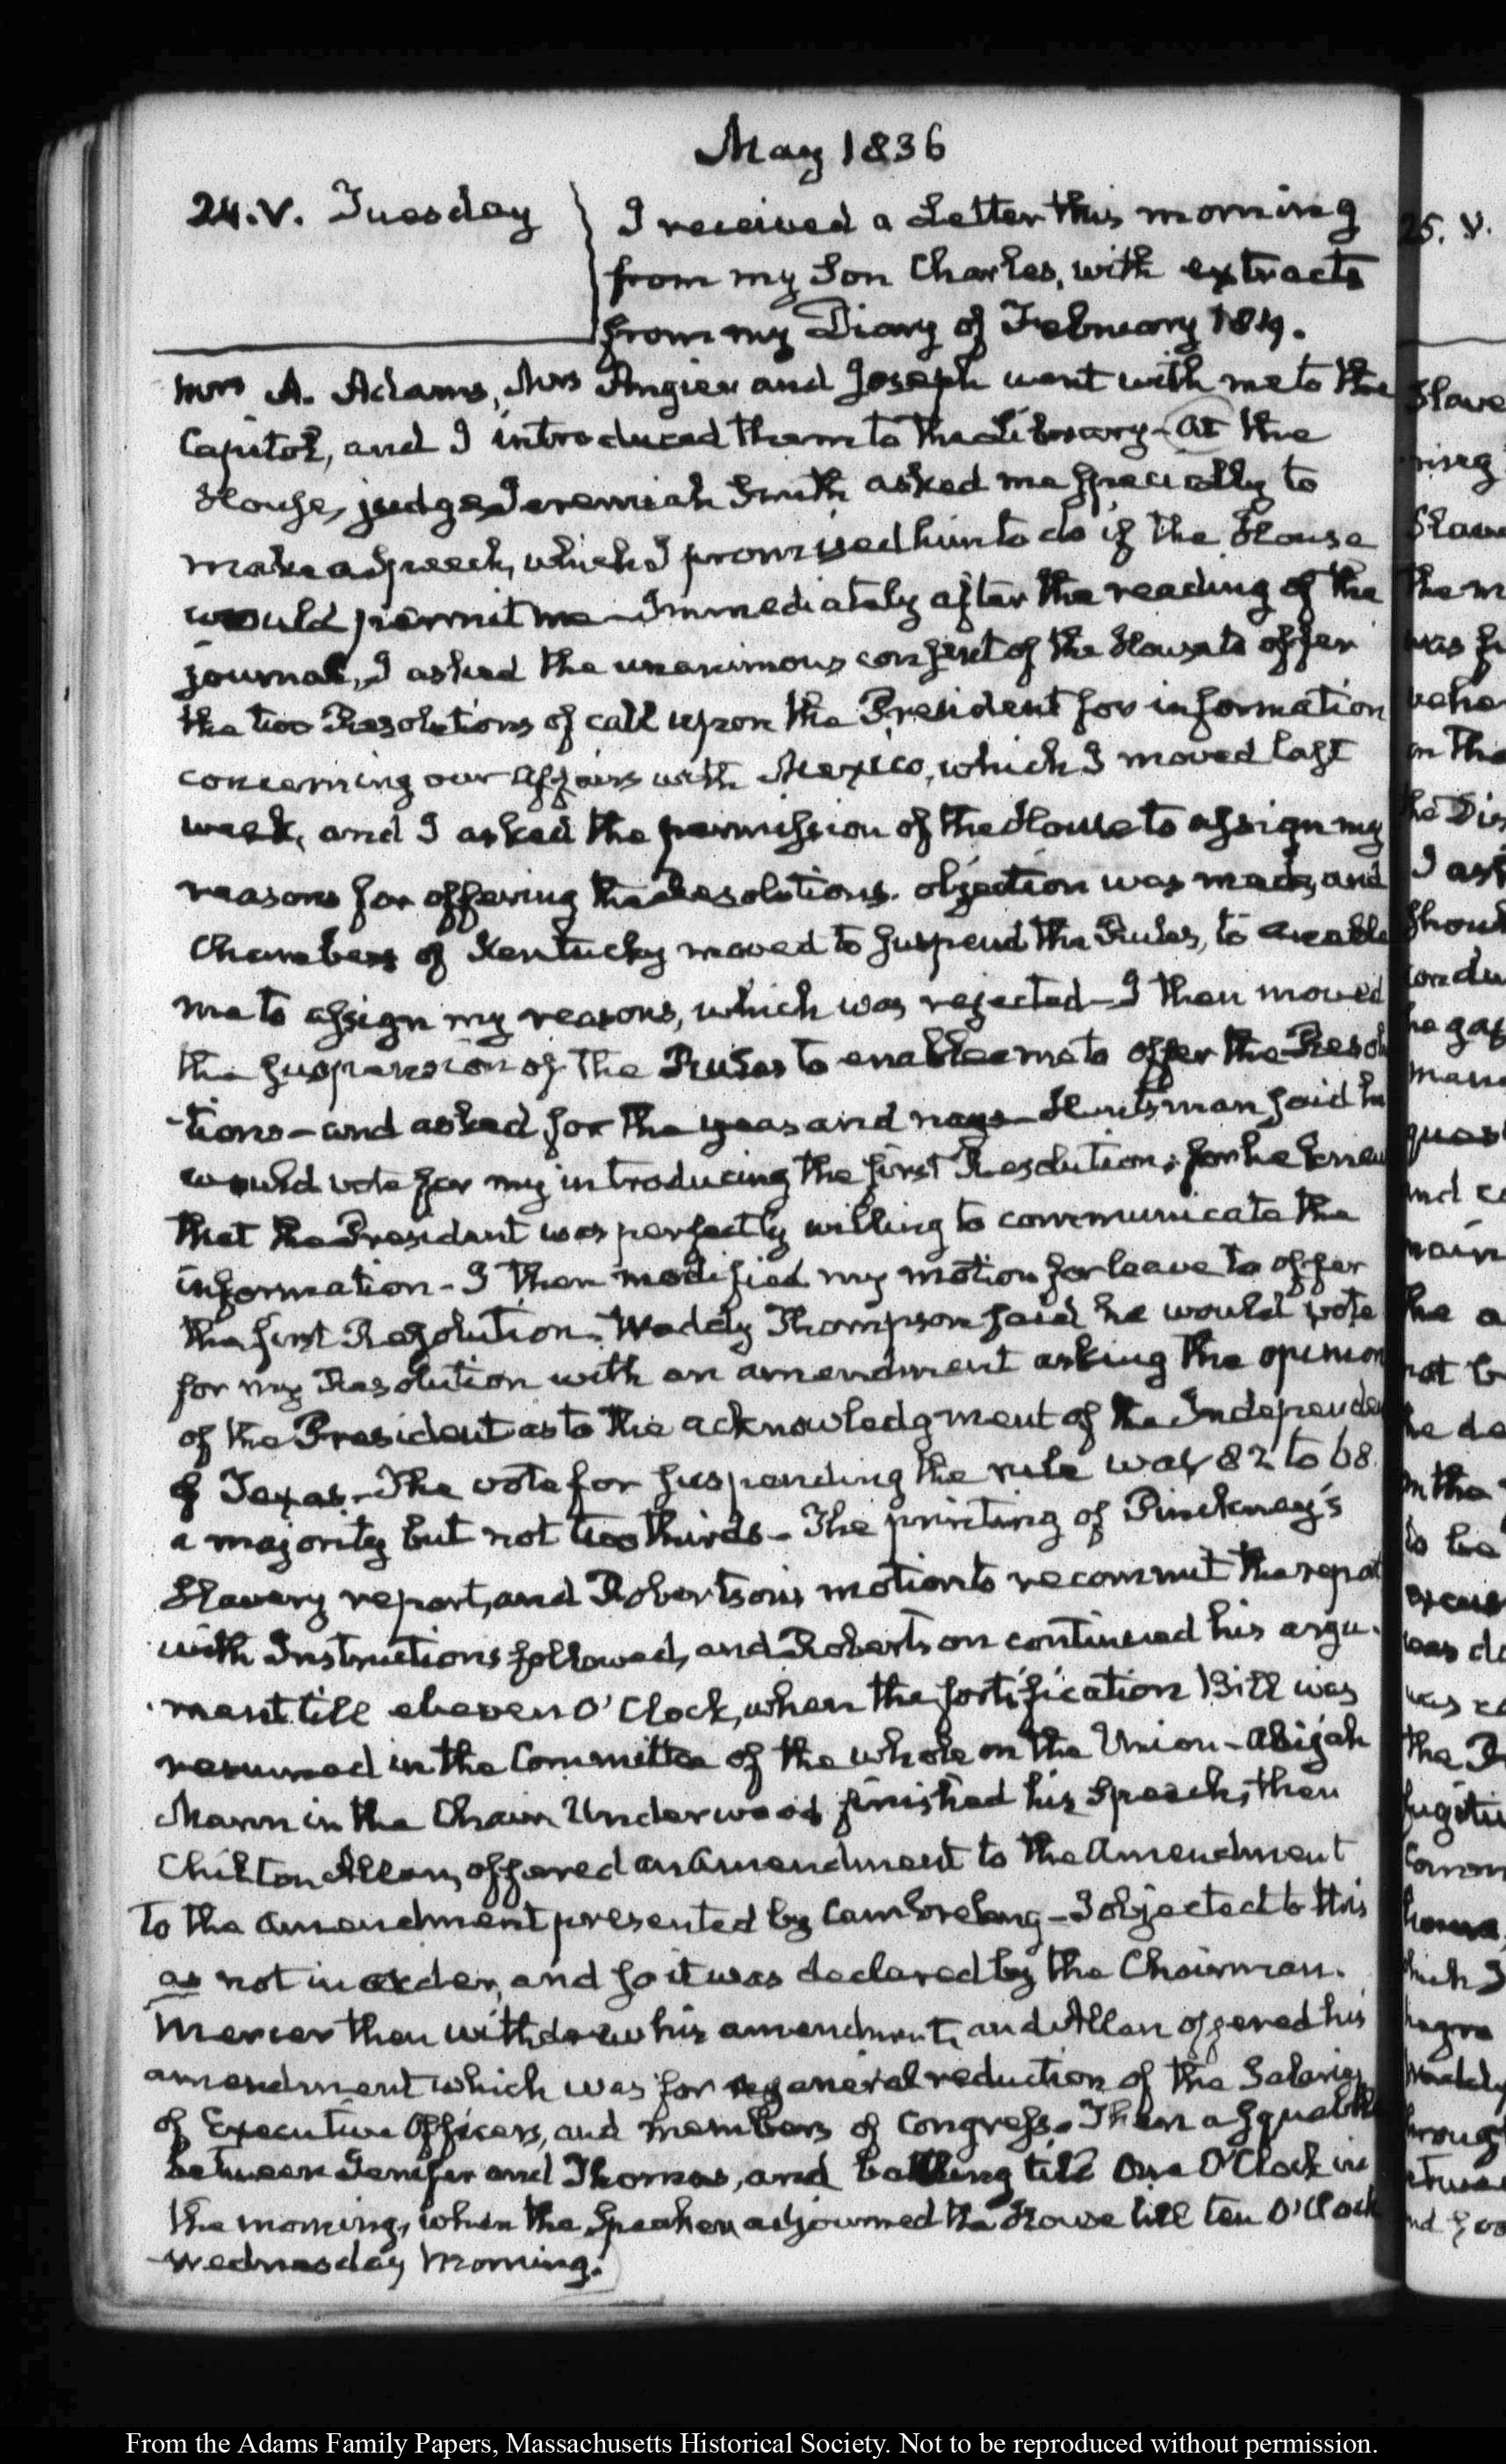 May 1836
24. V. Tuesday
I received a Letter this morning
from my Son Charles, with extracts
from my Diary of February 1819.
Mrs A. Adams, Mrs Angier and Joseph went with me to the
Capitol, and I introduced them to the Library - At the
House, judge Jeremiah Smith asked me specially to
make a Speech, which I promised him to do if the House
would permit me - Immediately after the reading of the
journal, I asked the unanimous consent of the House to offer
the two Resolutions of call upon the President for information
concerning our affairs with Mexico, which I moved last
week, and I asked the permission of the House to assign my
reasons for offering the Resolutions. objection was made, and
Chambers of Kentucky moved to suspend the Rules, to enable
me to assign my reasons, which was rejected - I then moved
the suspension of the Rules to enable me to offer the Resolu
-tions - and asked for the yeas and nays - Huntsman said he
would vote for my introducing the first Resolution; for he knew
that the President was perfectly willing to communicate the
information - I then modified my motion for leave to offer
the first Resolution. Waddy Thompson said he would vote
for my Resolution with an amendment asking the opinion
of the President as to the acknowledgment of the Independen
of Texas - The vote for suspending the rule was 82 to 68.
a majority but not two thirds - The printing of Pinckney's
Slavery report, and Robertson's motion to recommit the report
with Instructions followed, and Robertson continued his argu-
ment till eleven O'Clock, when the fortification Bill was
resumed in the Committee of the whole on the Union - Abijah
Mann in the Chair. Underwood finished his Speech; then
Chilton Allan, offered an Amendment to the Amendment
to the Amendment presented by Cambreleng - I objected to this
as not in order, and so it was declared by the Chairman.
Mercer then withdrew his amendment, and Allan offered his
amendment which was for a general reduction of the Salaries
of Executive Officers, and members of Congress. Then a squabble
between Jenifer and Thomas, and balling till One O'Clock in
the morning, when the Speaker adjourned the House till ten O'Clock
Wednesday Morning.
25. V.
From the Adams Family Papers, Massachusetts Historical Society. Not to be reproduced without permission.